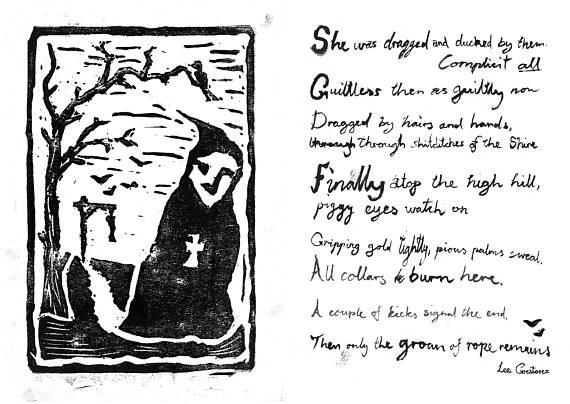 She was dragged and ducked by them.
Complicit all
Guiltless then as guilthy now
Dragged by hairs and hands,
through shitditches of the Shire
Finally atop the high hill,
piggy eyes watch on
Gripping gold tightly, pious palms sweat.
All collars burn here.
A couple of kicks signal the end.
Then only the groan of rope remains
Lee